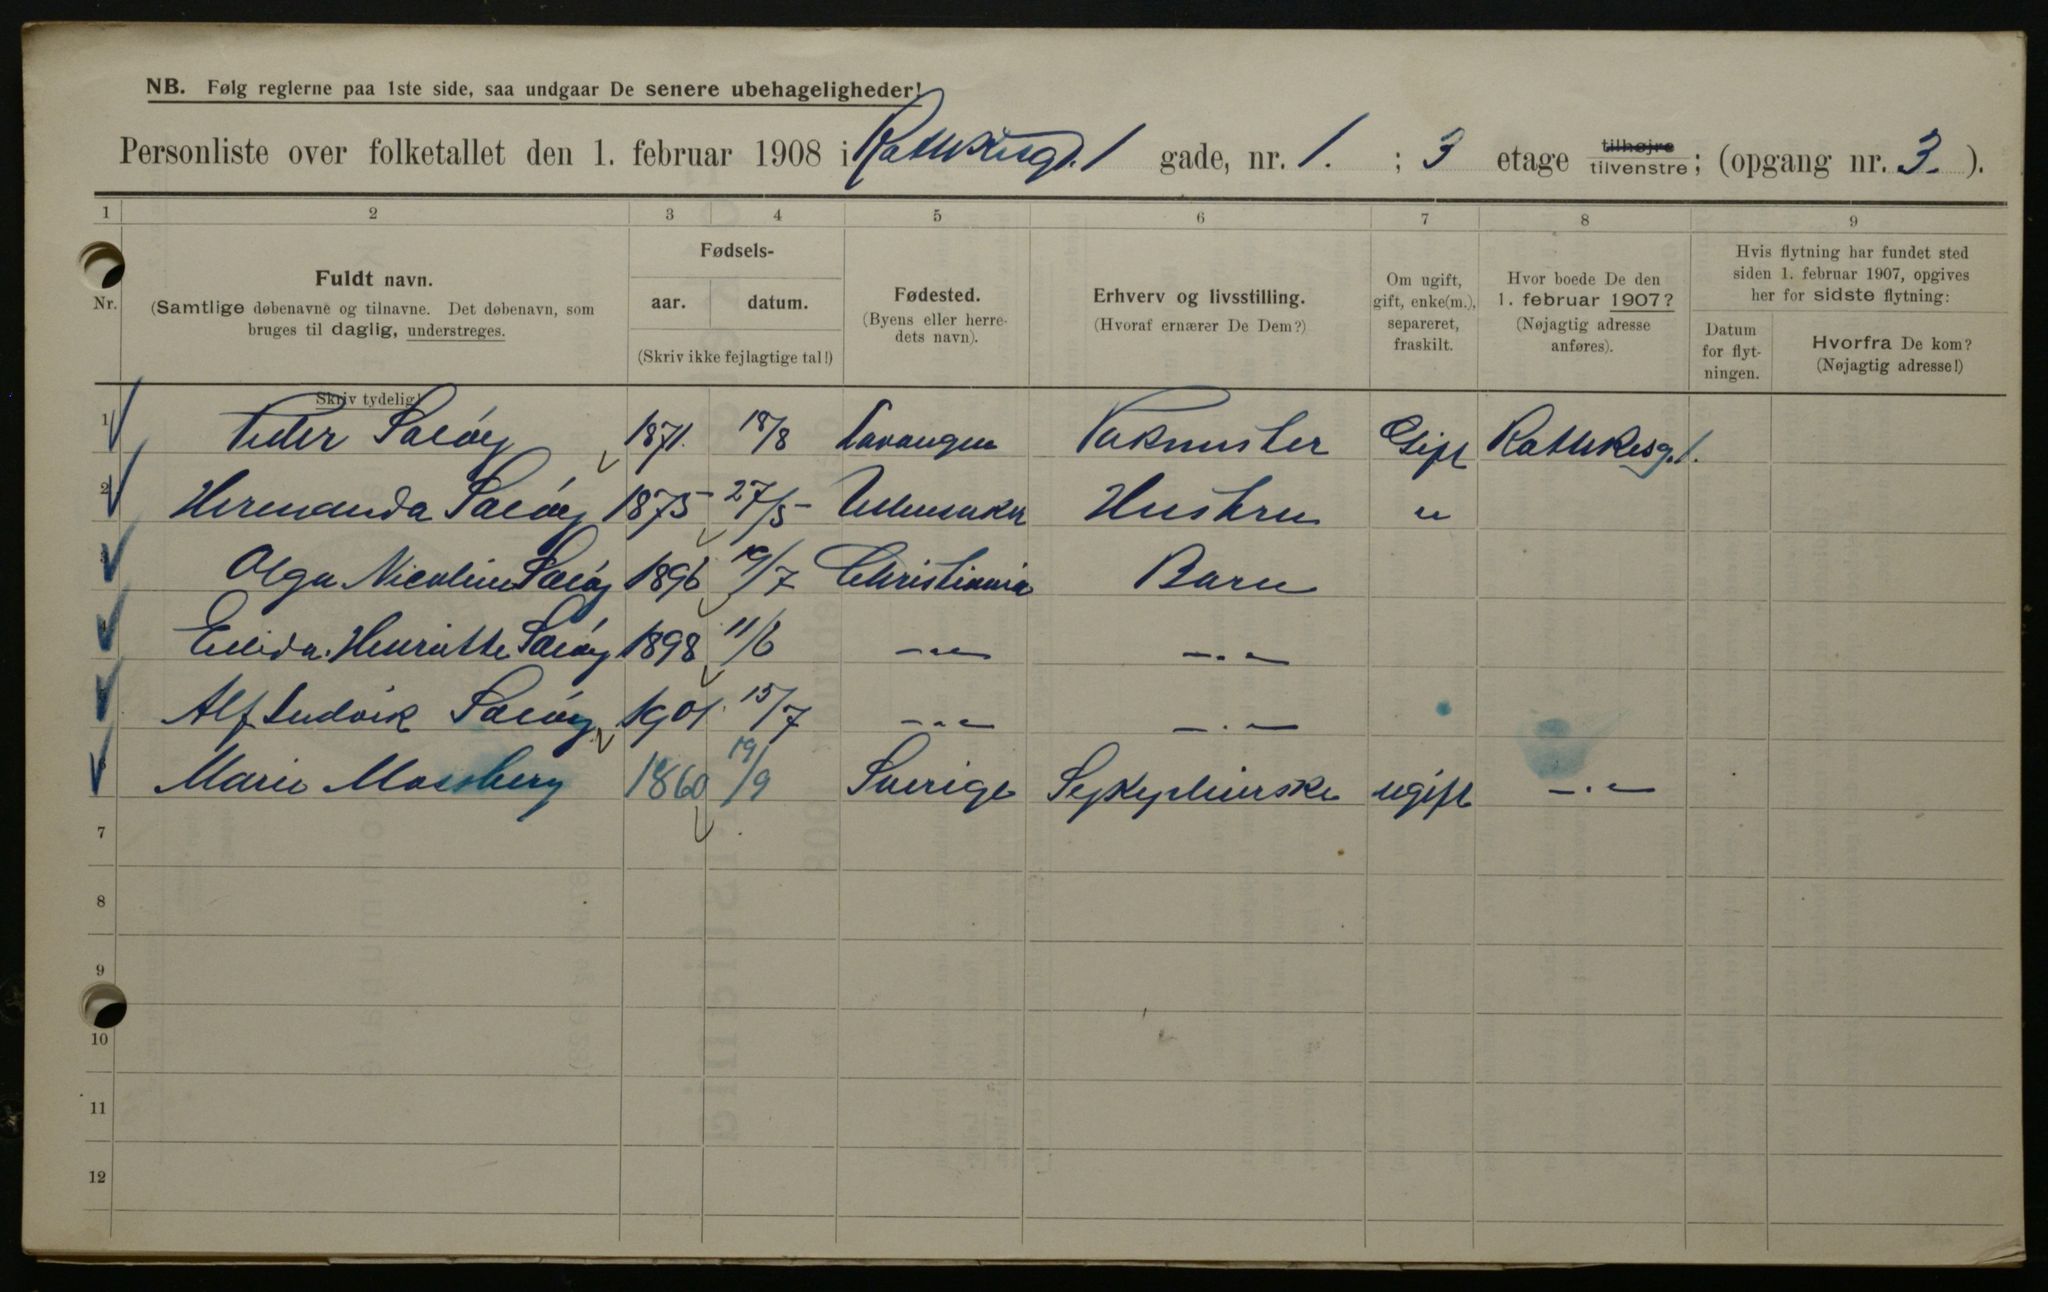 NB. Følg reglerne paa 1ste side, saa undgaar De senere ubehageligheder!
Personliste over folketallet den 1. februar 1908 i Rathkesgd. 1 gade, nr. 1. ; 3 etage tilhøjre/tilvenstre; (opgang nr. 3. ).
1 2 3 4 5 6 7 8 9
Nr.
Fuldt navn.
(Samtlige døbenavne og tilnavne. Det døbenavn, som
bruges til daglig, understreges.
Skriv tydelig!
Fødsels-
aar. datum.
(Skriv ikke fejlagtige tal!)
Fødested.
(Byens eller herre-
dets navn).
Erhverv og livsstilling.
(Hvoraf ernærer De Dem?)
Om ugift,
gift, enke(m.),
separeret,
fraskilt.
Hvor boede De den
1. februar 1907?
(Nøjagtig adresse
anføres).
Hvis flytning har fundet sted
siden 1. februar 1907, opgives
her for sidste flytning:
Datum
for flyt-
ningen.
Hvorfra De kom?
(Nøjagtig adresse!)
1 Peder 1871. 18/8 Lavangen Vakmester Gift Rathkesg. 1.
2 Hermanda 1875 27/5 Ullensaker Hustru "
3 Olga Nicoline 1896 19/7 Christiania Barn
Henriette 1898 11/6 —"— —"—
Alf Ludvik 1901. 15/7 —"— —"—
Marie Mossberg 1860 19/9 Sverige Sykepleierske ugift —"—
7
8
9
10
11
12